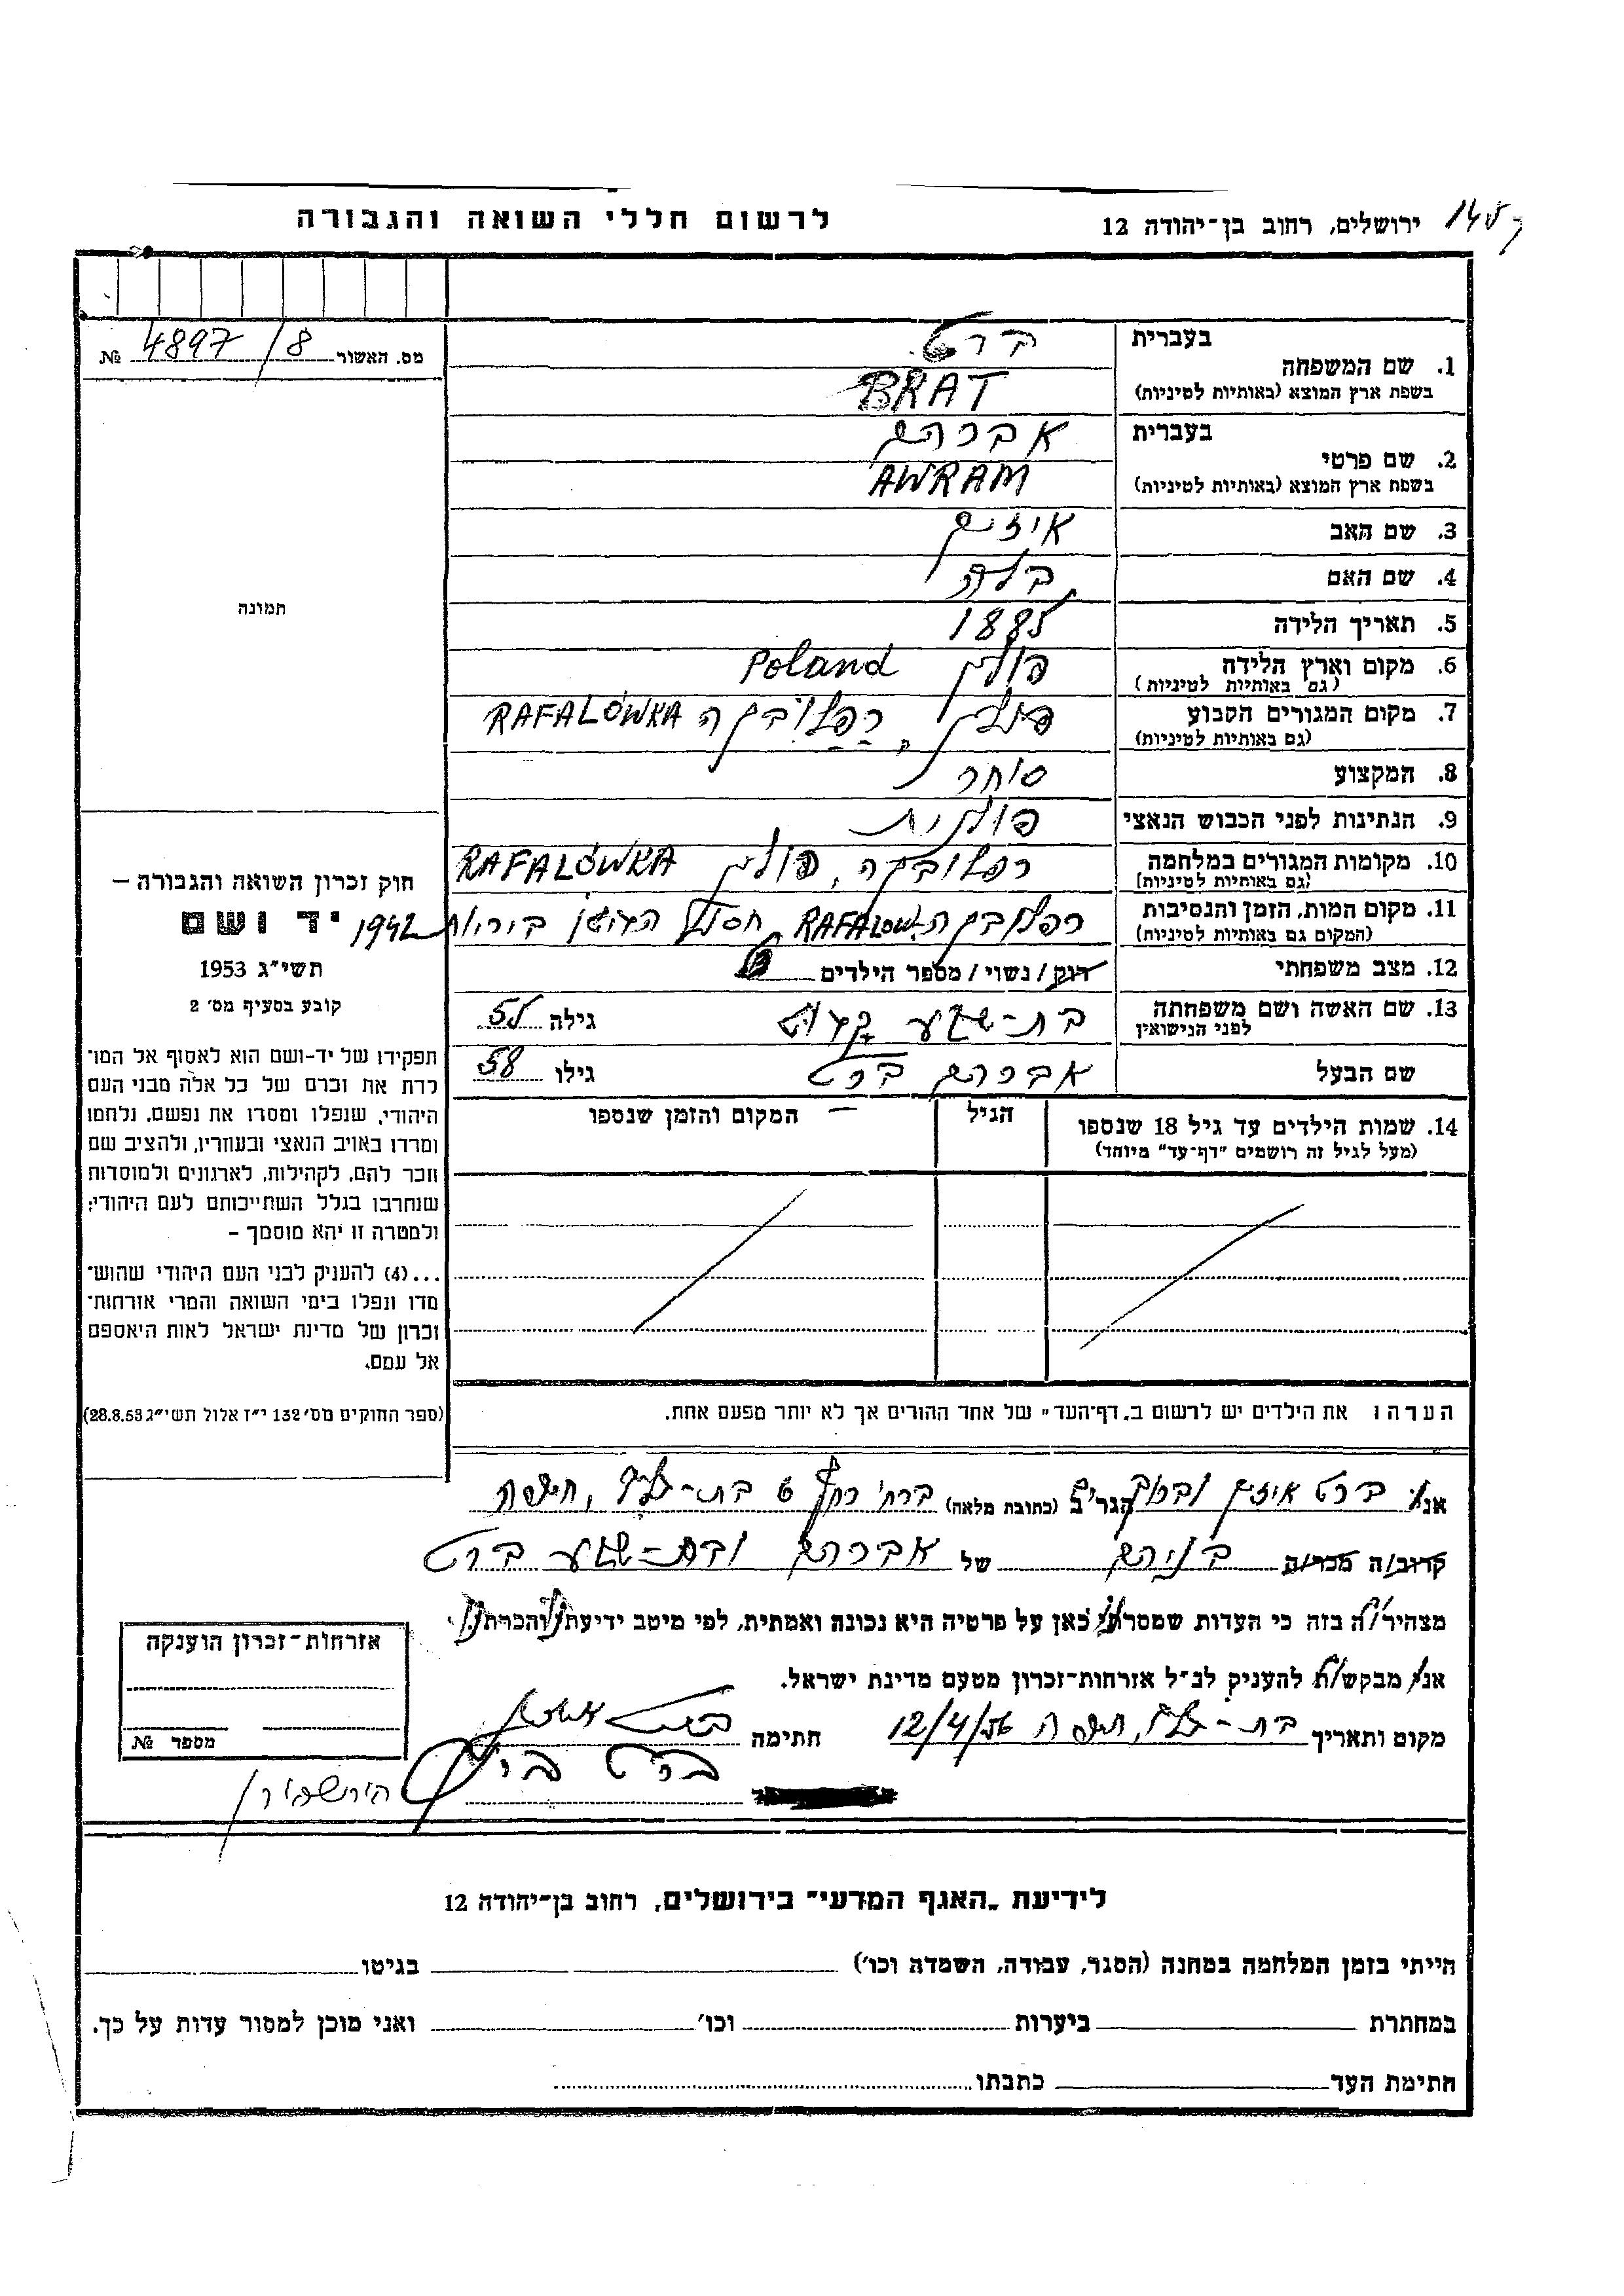 לרשום חללי השואה והגבורה
ירושלים, רחוב בן־יהודה 12
מס. האשור 8/4897 №
בעברית ברט
1. שם המשפחה
בשפת ארץ המוצא (באותיות לטיניות) BRAT
בעברית אברהם
2. שם פרטי
בשפת ארץ המוצא (באותיות לטיניות) AWRAM
3. שם האב איזיק
4. שם האם בלה
5. תאריך הלידה 1885
6. מקום וארץ הלידה פולין Poland
(גם באותיות לטיניות)
7. מקום המגורים הקבוע פולין, רפלובקה RAFALÓWKA
(גם באותיות לטיניות)
8. המקצוע סוחר
9. הנתינות לפני הכבוש הנאצי פולנית
10. מקומות המגורים במלחמה רפלובקה, פולין RAFALÓWKA
(גם באותיות לטיניות)
11. מקום המות, הזמן והנסיבות רפלובקה RAFALOW ביריות 1942
(המקום גם באותיות לטיניות)
12. מצב משפחתי רוק/נשוי/מספר הילדים
13. שם האשה ושם משפחתה בת-שבע גילה 55
לפני הנישואין
שם הבעל אברהם ברט גילו 58
14. שמות הילדים עד גיל 18 שנספו הגיל המקום והזמן שנספו
(מעל לגיל זה רושמים "דף־עד" מיוחד)
הערהו את הילדים יש לרשום ב„דף־העד" של אחד ההורים אך לא יותר מפעם אחת.
תמונה
חוק זכרון השואה והגבורה —
יד ושם
תשי"ג 1953
קובע בסעיף מס' 2
תפקידו של יד-ושם הוא לאסוף אל המו־
לדת את זכרם של כל אלה מבני העם
היהודי, שנפלו ומסרו את נפשם, נלחמו
ומרדו באויב הנאצי ובעוזריו, ולהציב שם
וזכר להם, לקהילות, לארגונים ולמוסדות
שנחרבו בגלל השתייכותם לעם היהודי;
ולמטרה זו יהא מוסמך –
...(4) להעניק לבני העם היהודי שהוש־
מדו ונפלו בימי השואה והמרי אזרחות־
זכרון של מדינת ישראל לאות היאספם
אל עמם.
(ספר החוקים מס' 132 י"ז אלול תשי"ג 28.8.53)
אני ברט איזיק הגר/ים (כתובת מלאה) ברח' 6 בת-גלים, חיפה
קרוב/ה מכר/ה בניהם של אברהם ובת-שבע ברט
מצהיר/ה בזה כי העדות שמסרתי כאן על פרטיה היא נכונה ואמתית, לפי מיטב ידיעתי והכרתי.
אני מבקש/ת להעניק לנ"ל אזרחות־זכרון מטעם מדינת ישראל.
מקום ותאריך בת-גלים, חיפה 12/4/56 חתימה
ברט
אזרחות־זכרון הוענקה
מספר №
לידיעת „האגף המדעי" בירושלים, רחוב בן־יהודה 12
הייתי בזמן המלחמה במחנה (הסגר, עבודה, השמדה וכו') בגיטו
במחתרת ביערות וכו' ואני מוכן למסור עדות על כך.
חתימת העד כתבתו